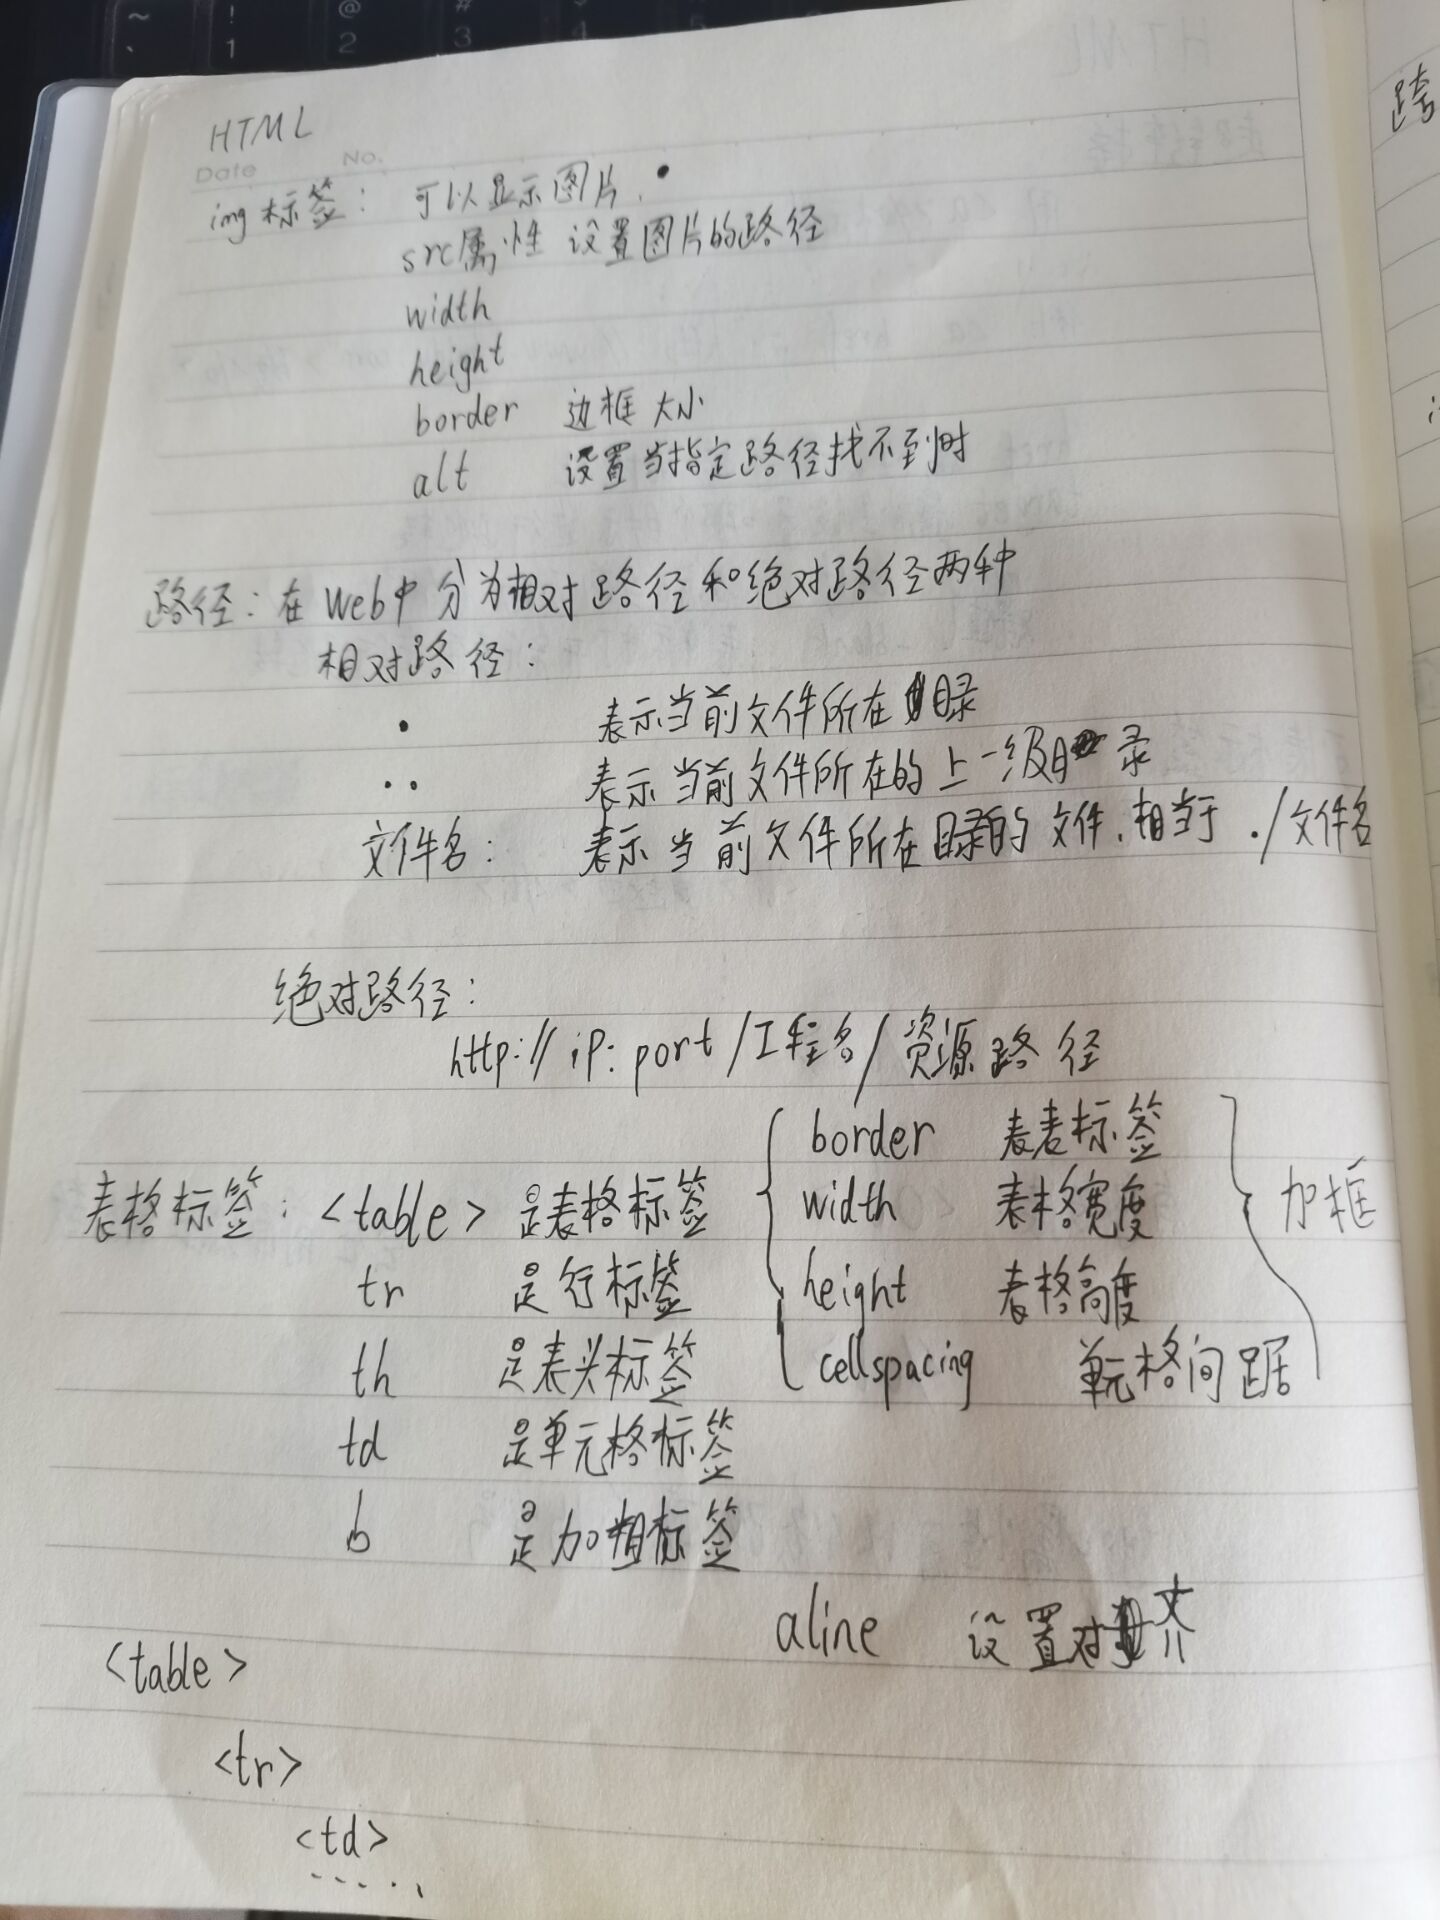 HTML
Date No.
img标签： 可以显示图片.
src属性 设置图片的路径
width
height
border 边框大小
alt 设置当指定路径找不到时
路径：在Web中分为相对路径和绝对路径两种
相对路径：
. 表示当前文件所在目录
.. 表示当前文件所在的上一级目录
文件名： 表示当前文件所在目录的文件，相当于 ./文件名
绝对路径：
http://ip:port/工程名/资源路径
表格标签：<table> 是表格标签
tr 是行标签
th 是表头标签
td 是单元格标签
b 是加粗标签
border 表表标签
width 表格宽度
height 表格高度
cellspacing 单元格间距
加框
aline 设置对齐
<table>
<tr>
<td>
.....
跨